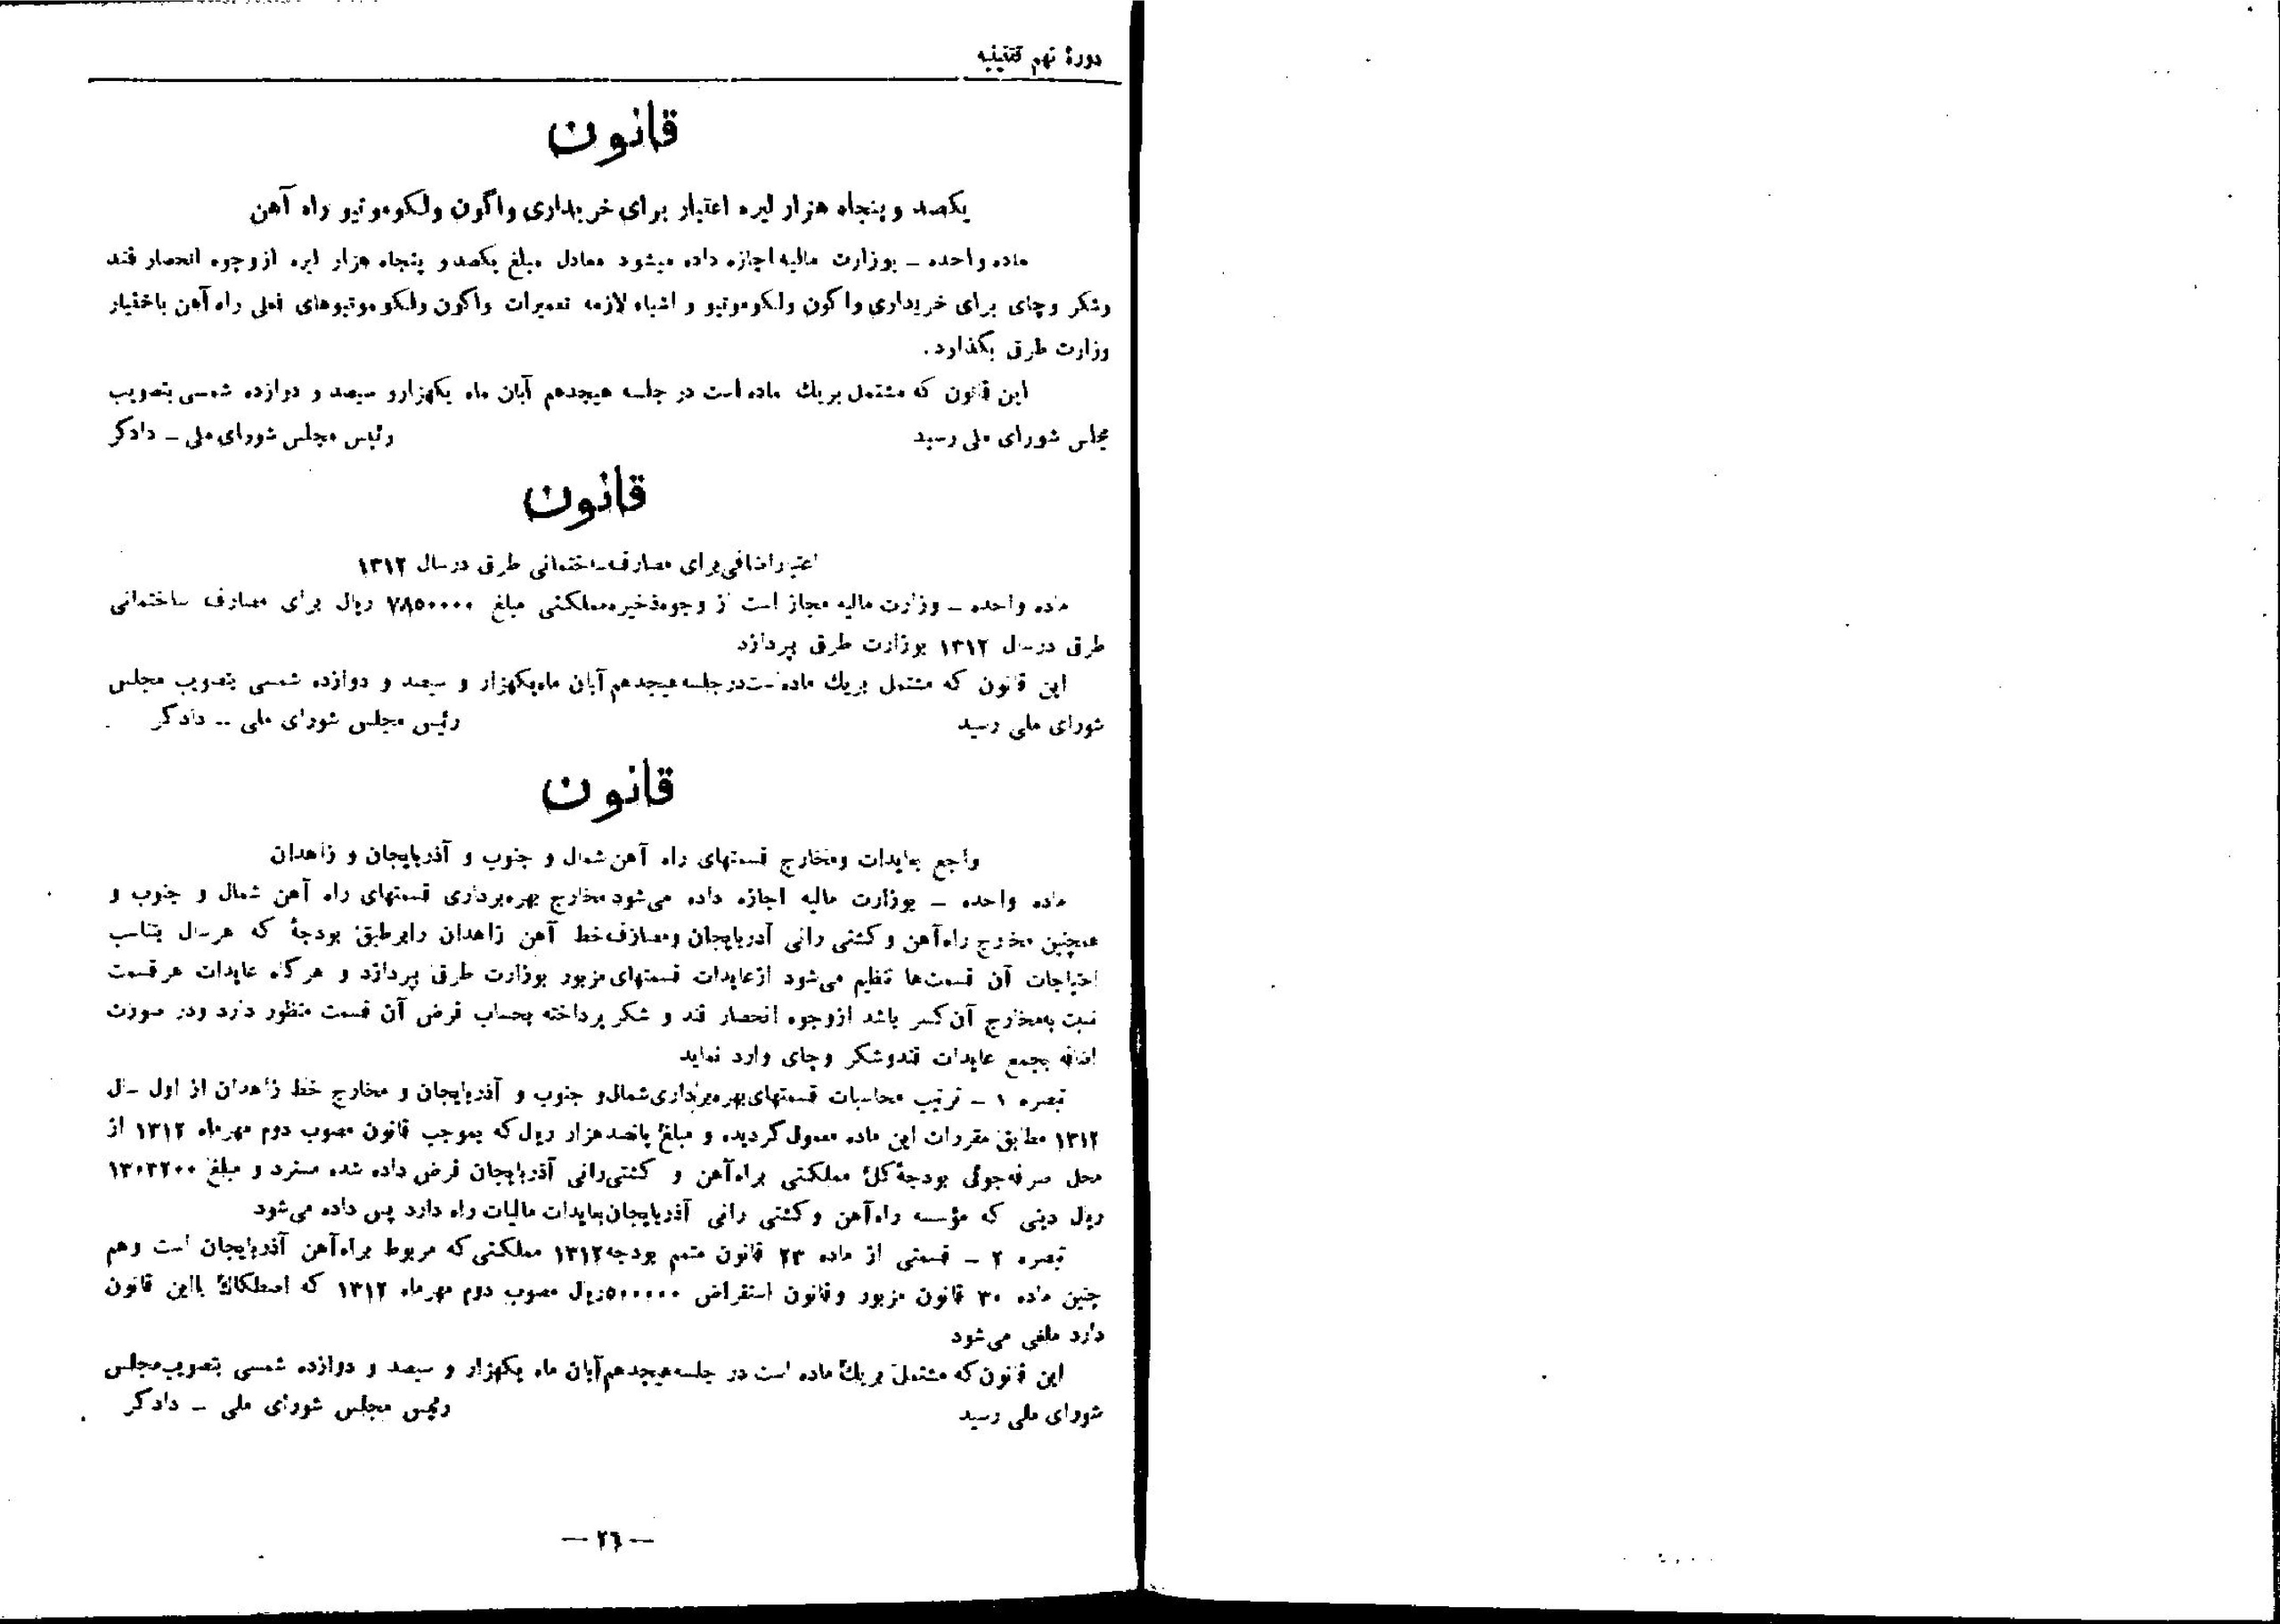 دورهٔ نهم تقنینیه
قانون
یکصد و پنجاه هزار لیره اعتبار برای خریداری واگون ولکوموتیو راه آهن
ماده واحده ــ بوزارت مالیه اجازه داده میشود معادل مبلغ یکصد و پنجاه هزار لیره از وجوه انحصار قند
وشکر وچای برای خریداری واگون ولکوموتیو و اشیاء لازمه تعمیرات واگون ولکوموتیوهای فعلی راه آهن باختیار
وزارت طرق بگذارد.
این قانون که مشتمل بریك ماده است در جلسه هیجدهم آبان ماه یکهزارو سیصد و دوازده شمسی بتصویب
مجلس شورای ملی رسید رئیس مجلس شورای ملی ــ دادگر
قانون
اعتبار اضافی برای مصارف ساختمانی طرق در سال ۱۳۱۲
ماده واحده ــ وزارت مالیه مجاز است از وجوه ذخیره مملکتی مبلغ ۷۸۵۰۰۰۰ ریال برای مصارف ساختمانی
طرق در سال ۱۳۱۲ بوزارت طرق پردازد
این قانون که مشتمل بریك ماده است در جلسه هیجدهم آبان ماه یکهزار و سیصد و دوازده شمسی بتصویب مجلس
شورای ملی رسید رئیس مجلس شورای ملی ــ دادگر
قانون
راجع بعایدات ومخارج قسمتهای راه آهن شمال و جنوب و آذربایجان و زاهدان
ماده واحده ــ بوزارت مالیه اجازه داده می‌شود مخارج بهره‌برداری قسمتهای راه آهن شمال و جنوب و
همچنین مخارج راه‌آهن و کشتی رانی آذربایجان ومصارف خط آهن زاهدان رابرطبق بودجهٔ که هر سال بتناسب
احتیاجات آن قسمت‌ها تنظیم می‌شود از عایدات قسمتهای مزبور بوزارت طرق پردازد و هر گاه عایدات هر قسمت
نسبت به‌مخارج آن کسر باشد ازوجوه انحصار قند و شکر پرداخته بحساب قرض آن قسمت منظور دارد ودر صورت
اضافه بجمع عایدات قندوشکر وچای وارد نماید
تبصره ۱ ــ ترتیب محاسبات قسمتهای بهره‌برداری شمال و جنوب و آذربایجان و مخارج خط زاهدان از اول سال
۱۳۱۲ مطابق مقررات این ماده معمول گردیده و مبلغ پانصد هزار ریال که بموجب قانون مصوب دوم مهرماه ۱۳۱۲ از
محل صرفه‌جوئی بودجهٔ کل مملکتی براه‌آهن و کشتی‌رانی آذربایجان قرض داده شده مسترد و مبلغ ۱۳۰۳۲۰۰
ریال دینی که مؤسسه راه‌آهن وکشتی رانی آذربایجان بعایدات مالیات راه دارد پس داده می‌شود
تبصره ۲ ــ قسمتی از ماده ۲۳ قانون متمم بودجه ۱۳۱۲ مملکتی که مربوط براه‌آهن آذربایجان است وهم
چنین ماده ۳۰ قانون مزبور وقانون استقراض ۵۰۰۰۰۰ ریال مصوب دوم مهرماه ۱۳۱۲ که اصطکاك بااین قانون
دارد ملغی می‌شود
این قانون که مشتمل بریك ماده است در جلسه هیجدهم آبان ماه یکهزار و سیصد و دوازده شمسی بتصویب مجلس
شورای ملی رسید رئیس مجلس شورای ملی ــ دادگر
— ۲۶ —